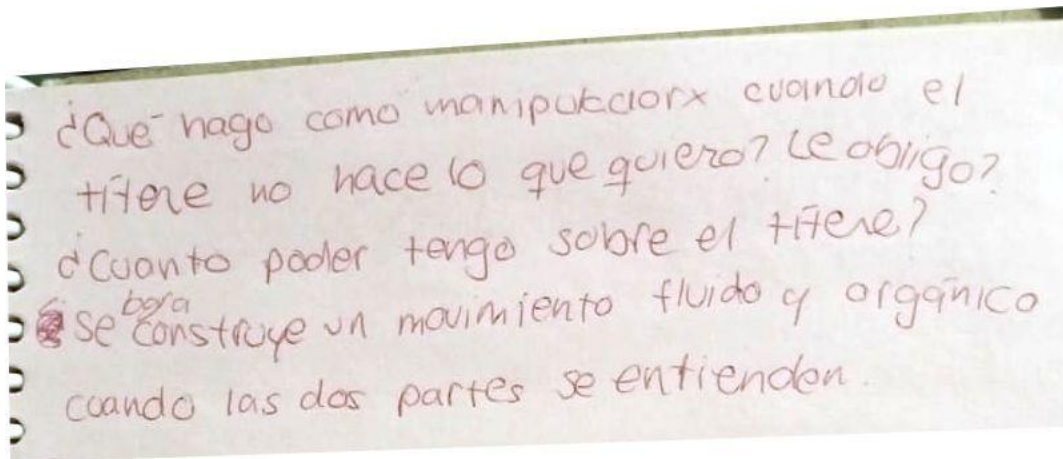 ¿Que hago como manipuladorx cuando el
títere no hace lo que quiero? Le obligo?
¿Cuanto poder tengo sobre el títere?
se construye un movimiento fluido y orgánico
cuando las dos partes se entienden.